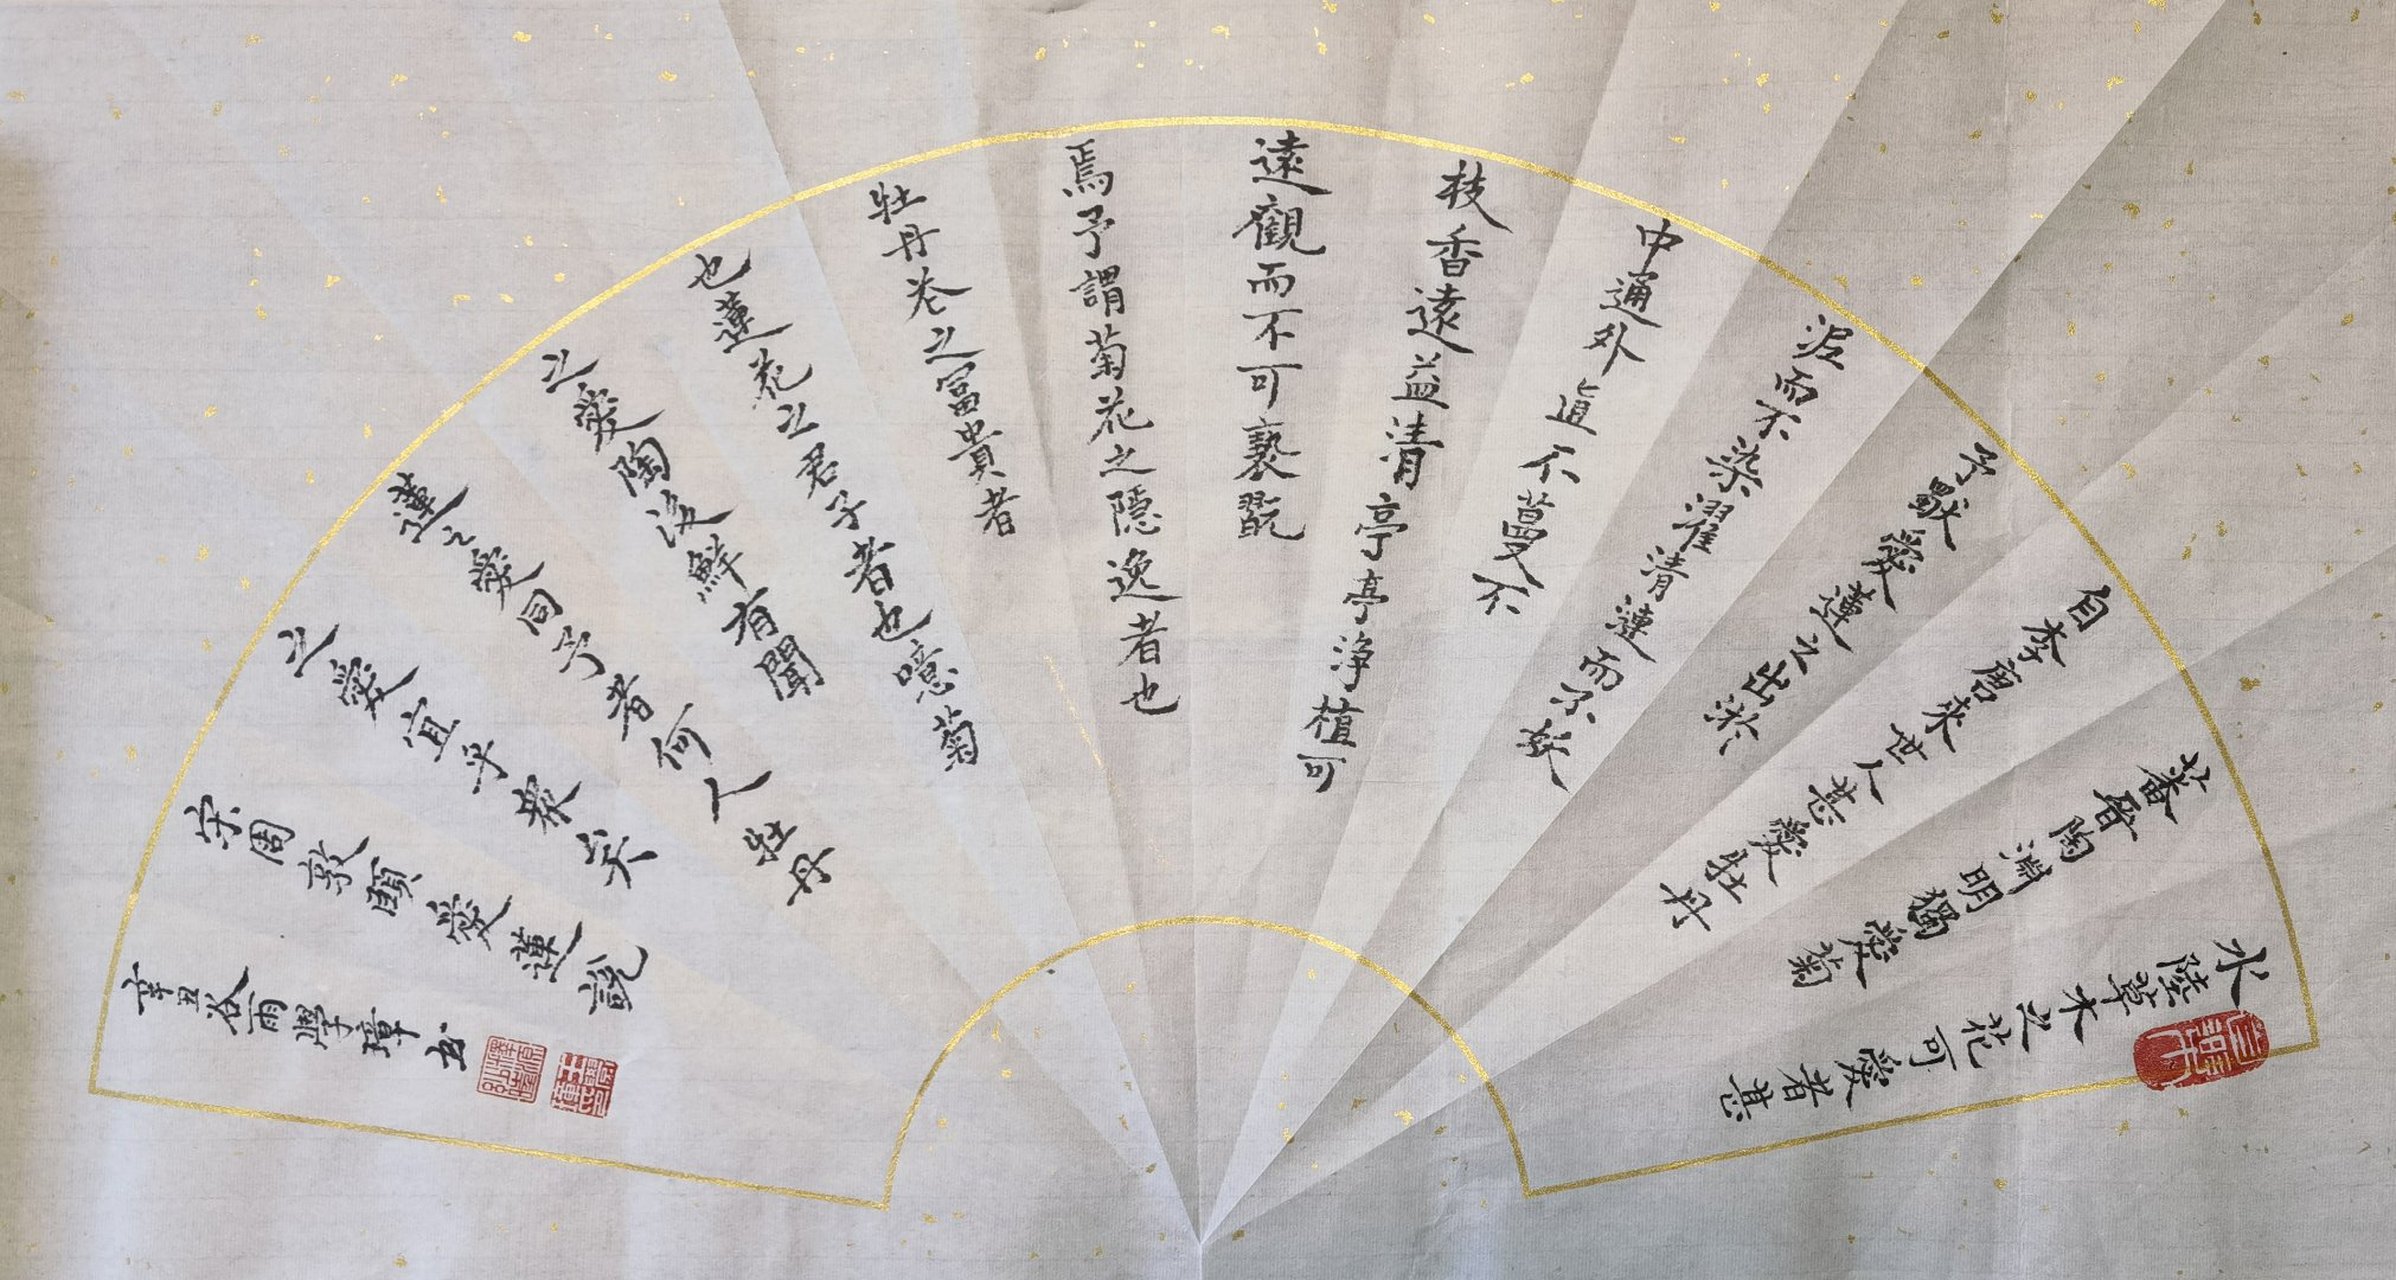 水陸草木之花可愛者甚
蕃晉陶淵明獨愛菊
自李唐來世人甚愛牡丹
予獨愛蓮之出淤
泥而不染濯清漣而不妖
中通外直不蔓不
枝香遠益清亭亭淨植可
遠觀而不可褻翫
焉予謂菊花之隱逸者也
牡丹花之富貴者
也蓮花之君子者也噫菊
之愛陶後鮮有聞
蓮之愛同予者何人牡丹
之愛宜乎衆矣
宋周敦頤愛蓮說
辛丑谷雨學璋书